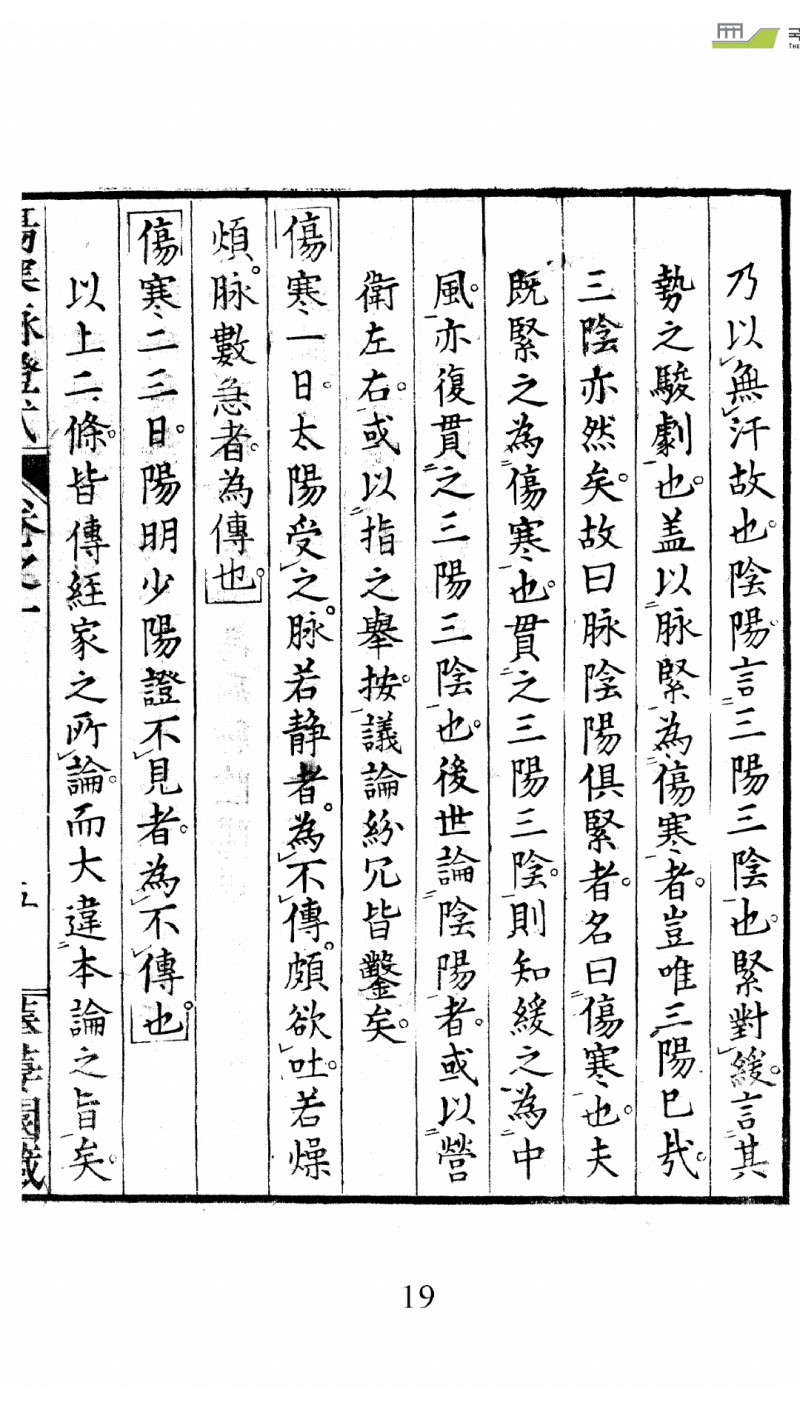 乃以無汗故也。陰陽言三陽三陰也。緊對緩。言其
勢之駿劇也。盖以脉緊為傷寒者。豈唯三陽已㦲。
三陰亦然矣。故曰脉陰陽俱緊者。名曰傷寒也。夫
既緊之為傷寒也。貫之三陽三陰。則知緩之為中
風。亦復貫之三陽三陰也。後世論陰陽者。或以營
衛左右。或以指之舉按。議論紛冗皆鑿矣。
傷寒一日。太陽受之。脉若靜者。為不傳。頗欲吐。若燥
煩。脉數急者。為傳也。
傷寒二三日。陽明少陽證不見者。為不傳也。
以上二條。皆傳経家之所論。而大違本論之旨矣。
五
19